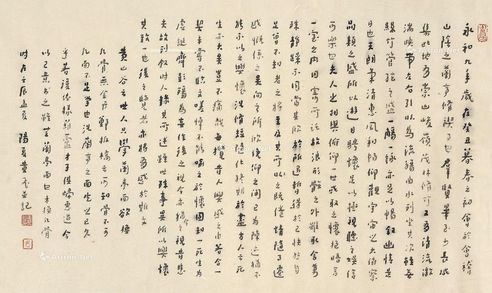 永和九年歲在癸丑暮春之初會於會稽
山陰之蘭亭脩禊事也群賢畢至少長咸
集此地有崇山峻嶺茂林脩竹又有清流激
湍映帶左右引以為流觴曲水列坐其次雖無
絲竹管絃之盛一觴一詠亦足以暢敘幽情是
日也天朗氣清惠風和暢仰觀宇宙之大俯察
品類之盛所以遊目騁懷足以極視聽之娛信
可樂也夫人之相與俯仰一世或取諸懷抱悟言
一室之內或因寄所託放浪形骸之外雖取舍萬
殊靜躁不同當其欣於所遇暫得於己快然自
足不知老之將至及其所之既倦情隨事遷
感慨係之矣向之所欣俛仰之間已為陳迹猶不
能不以之興懷況脩短隨化終期於盡古人云死
生亦大矣豈不痛哉每攬昔人興感之由若合一
契未嘗不臨文嗟悼不能喻之於懷固知一死生為
虛誕齊彭殤為妄作後之視今亦猶今之視昔悲
夫故列敘時人錄其所述雖世殊事異所以興懷
其致一也後之覽者亦將有感於斯文
黃山谷云世人只學蘭亭面欲換
凡骨無金丹